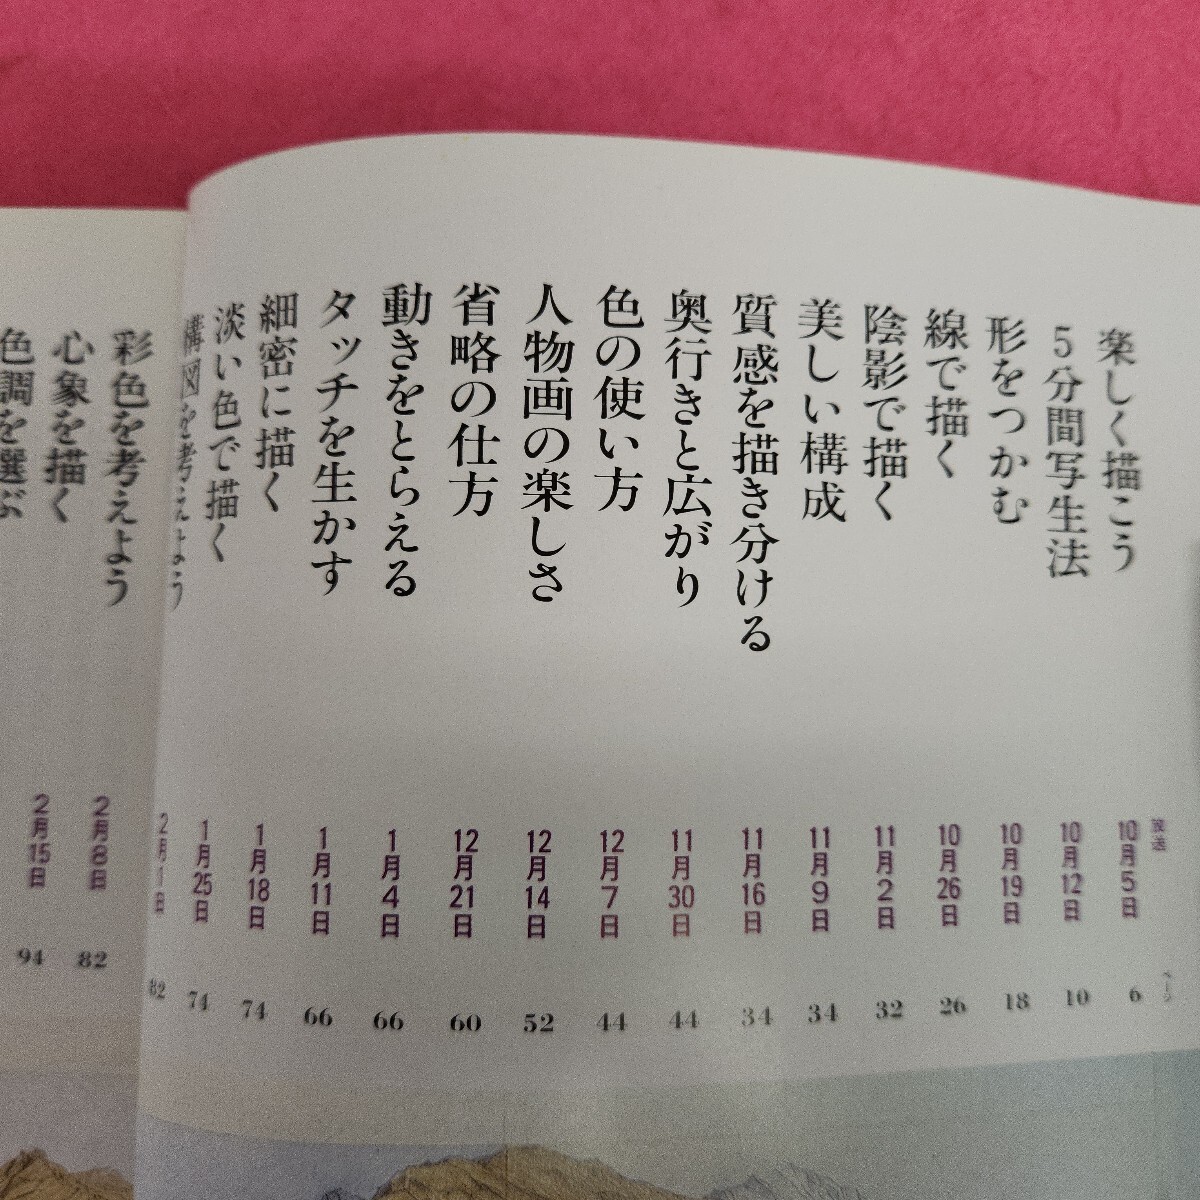 放送
ページ
楽しく描こう 10月5日 6
5分間写生法 10月12日 10
形をつかむ 10月19日 18
線で描く 10月26日 26
陰影で描く 11月2日 32
美しい構成 11月9日 34
質感を描き分ける 11月16日 34
奥行きと広がり 11月30日 44
色の使い方 12月7日 44
人物画の楽しさ 12月14日 52
省略の仕方 12月21日 60
動きをとらえる 1月4日 66
タッチを生かす 1月11日 66
細密に描く 1月18日 74
淡い色で描く 1月25日 74
構図を考えよう 2月1日 82
彩色を考えよう 2月8日 82
心象を描く 2月15日 94
色調を選ぶ